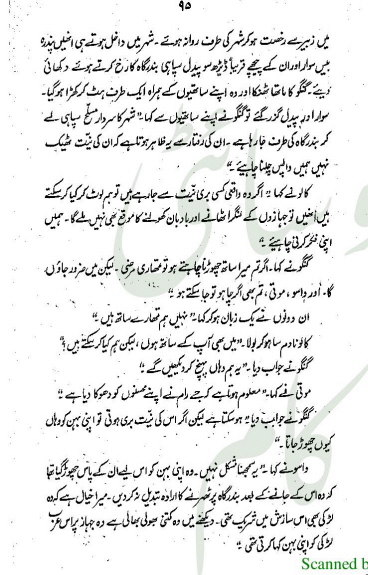 ۹۵
میں زبیر سے رخصت ہو کر شہر کی طرف روانہ ہوئے ۔ شہر میں داخل ہوتے ہی انھیں پندرہ
بیس سوار اور ان کے پیچھے قریباً ڈیڑھ سو پیدل سپاہی بندرگاہ کا رخ کرتے ہوئے دکھائی
دیئے ۔ گنگو کا ماتھا ٹھنکا اور وہ اپنے ساتھیوں کے ہمراہ ایک طرف ہٹ کر کھڑا ہو گیا ۔
سوار اور پیدل گزر گئے تو گنگو نے اپنے ساتھیوں سے کہا " شہر کا سردار مسلح سپاہی لے
کر بندرگاہ کی طرف جا رہا ہے ۔ ان کی رفتار سے یہ ظاہر ہوتا ہے کہ ان کی نیت ٹھیک
نہیں ہمیں واپس چلنا چاہیئے ۔"
کالو نے کہا " اگر وہ واقعی کسی بری نیت سے جا رہے ہیں تو ہم لوٹ کر کیا کر سکتے
ہیں انھیں تو جہازوں کے لنگر اٹھانے اور بادبان کھولنے کا موقع بھی نہیں ملے گا ۔ ہمیں
اپنی فکر کرنی چاہیئے ۔"
گنگو نے کہا ۔ اگر تم میرا ساتھ چھوڑنا چاہتے ہو تو تمھاری مرضی ۔ لیکن میں ضرور جاؤں
گا ۔ اور داسو ، موتی ، تم بھی اگر چاہو تو جا سکتے ہو ۔"
ان دونوں نے یک زبان ہو کر کہا ۔ " نہیں ہم تمھارے ساتھ ہیں ۔"
کالو نادم سا ہو کر بولا ۔ " میں بھی آپ کے ساتھ ہوں ، لیکن ہم کیا کر سکتے ہیں ؟"
گنگو نے جواب دیا ۔ " یہ ہم وہاں پہنچ کر دیکھیں گے ۔"
موتی نے کہا ۔ " معلوم ہوتا ہے کہ جے رام نے اپنے محسنوں کو دھوکا دیا ہے ۔"
گنگو نے جواب دیا ۔ " ہو سکتا ہے لیکن اگر اس کی نیت بری ہوتی تو اپنی بہن کو وہاں
کیوں چھوڑ جاتا ۔"
داسو نے کہا ۔ " یہ سمجھنا مشکل نہیں ۔ وہ اپنی بہن کو اس لیے ان کے پاس چھوڑ گیا تھا
کہ وہ اس کے جانے کے بعد بندرگاہ پر ٹھہرنے کا ارادہ تبدیل نہ کر دیں ۔ میرا خیال ہے کہ وہ
لڑکی بھی اس سازش میں شریک تھی ۔ دیکھنے میں وہ کتنی بھولی بھالی ہے وہ جہاز پر اس عرب
لڑکی کو اپنی بہن کہا کرتی تھی ۔"
Scanned b